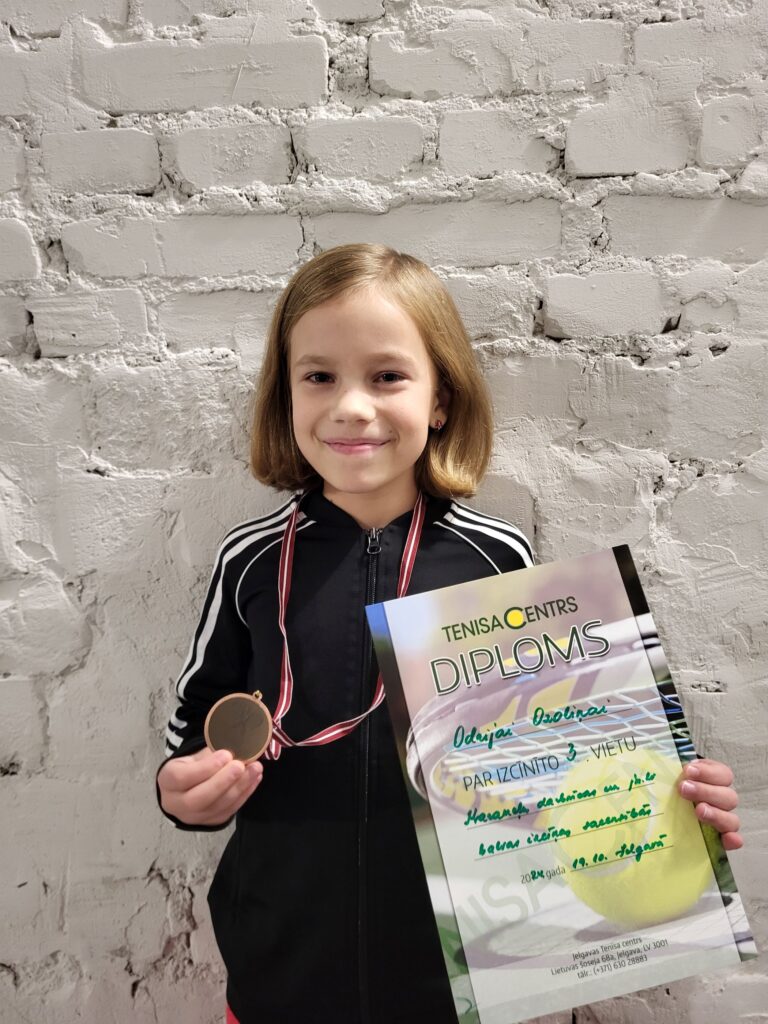 TENISA CENTRS
DIPLOMS
Odrijai Ozoliņai
PAR IZCĪNĪTO 3. VIETU
darbnīcas un
balvas izcīņas sacensībās
2024. gada 19.10. Jelgavā
Jelgavas Tenisa centrs
Lietuvas šoseja 68a, Jelgava, LV 3001
tālr.: (+371) 630 28883